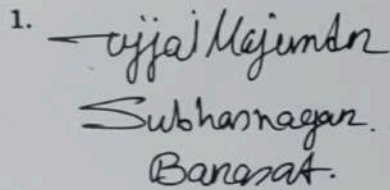 1. Ujjal Majumdar
Subhasnagar.
Barasat.